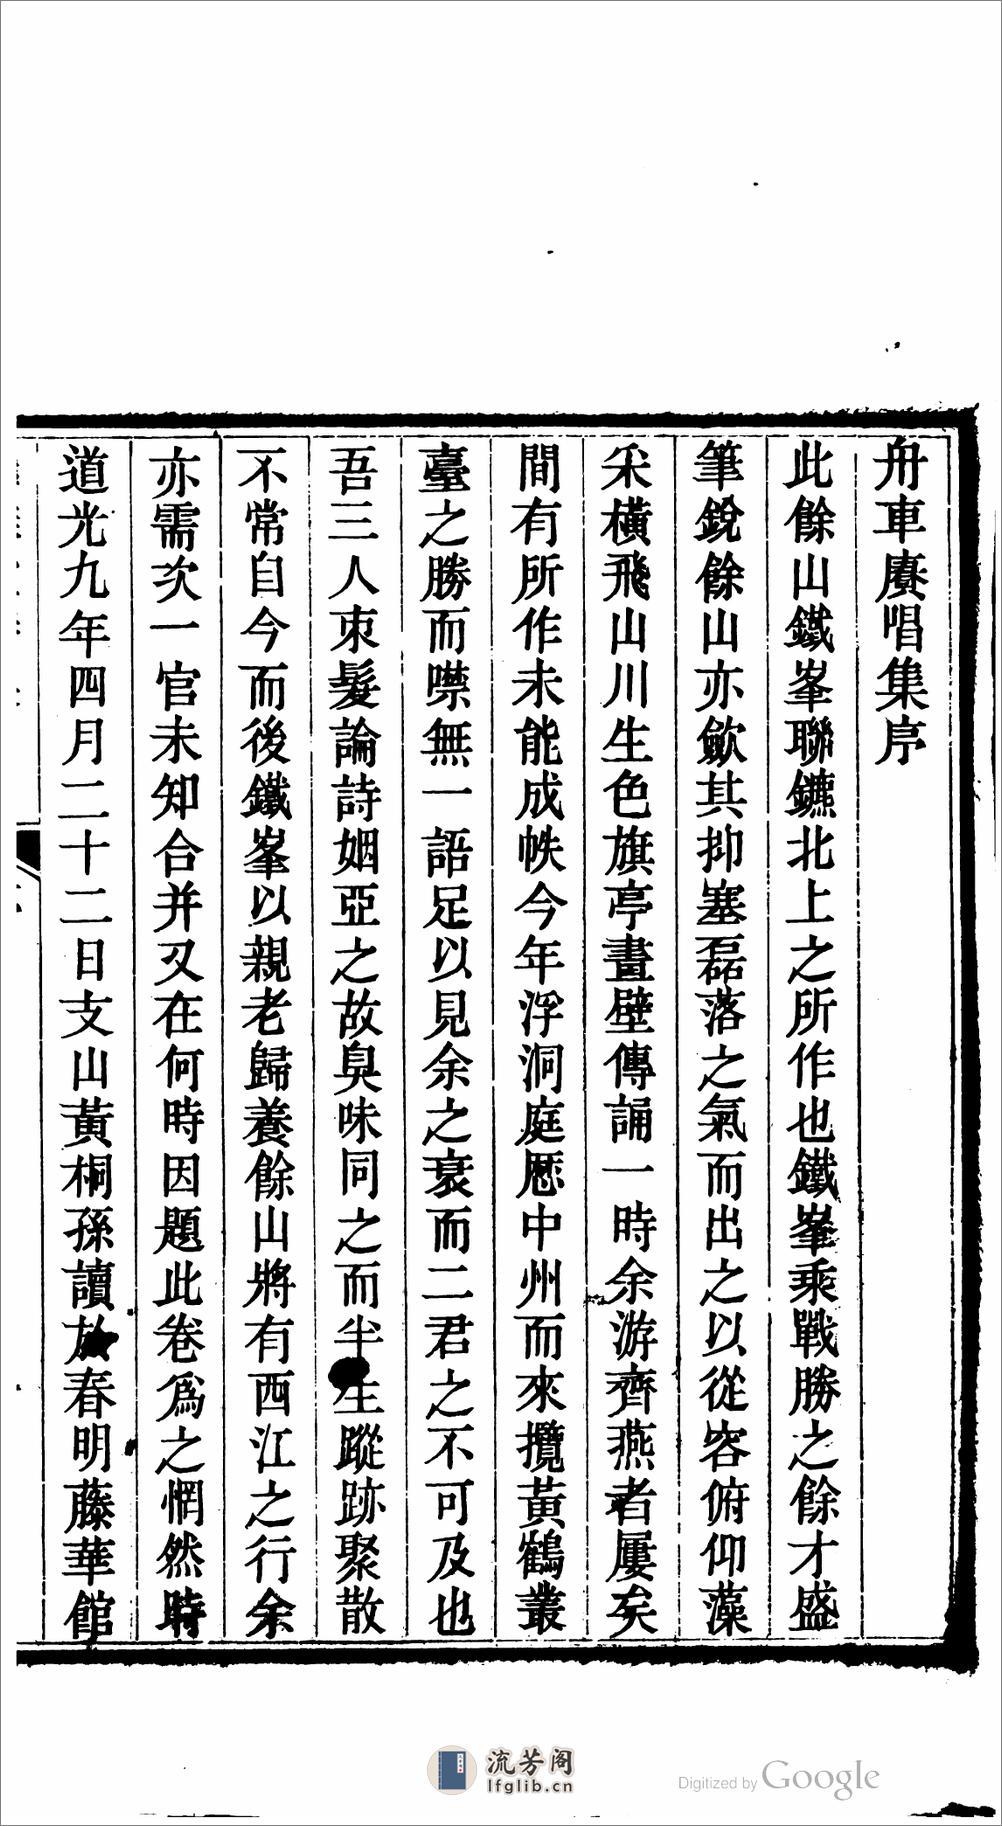 舟車賡唱集序
此餘山鐵峯聯鑣北上之所作也鐵峯乘戰勝之餘才盛
筆銳餘山亦歛其抑塞磊落之氣而出之以從容俯仰藻
采橫飛山川生色旗亭畫壁傳誦一時余游齊燕者屢矣
間有所作未能成帙今年浮洞庭歷中州而來攬黃鶴叢
臺之勝而噤無一語足以見余之衰而二君之不可及也
吾三人束髮論詩姻亞之故臭味同之而半生蹤跡聚散
不常自今而後鐵峯以親老歸養餘山將有西江之行余
亦需次一官未知合并又在何時因題此卷爲之惘然時
道光九年四月二十二日支山黃桐孫讀於春明藤華館
流芳阁
lfglib.cn
Digitized by Google